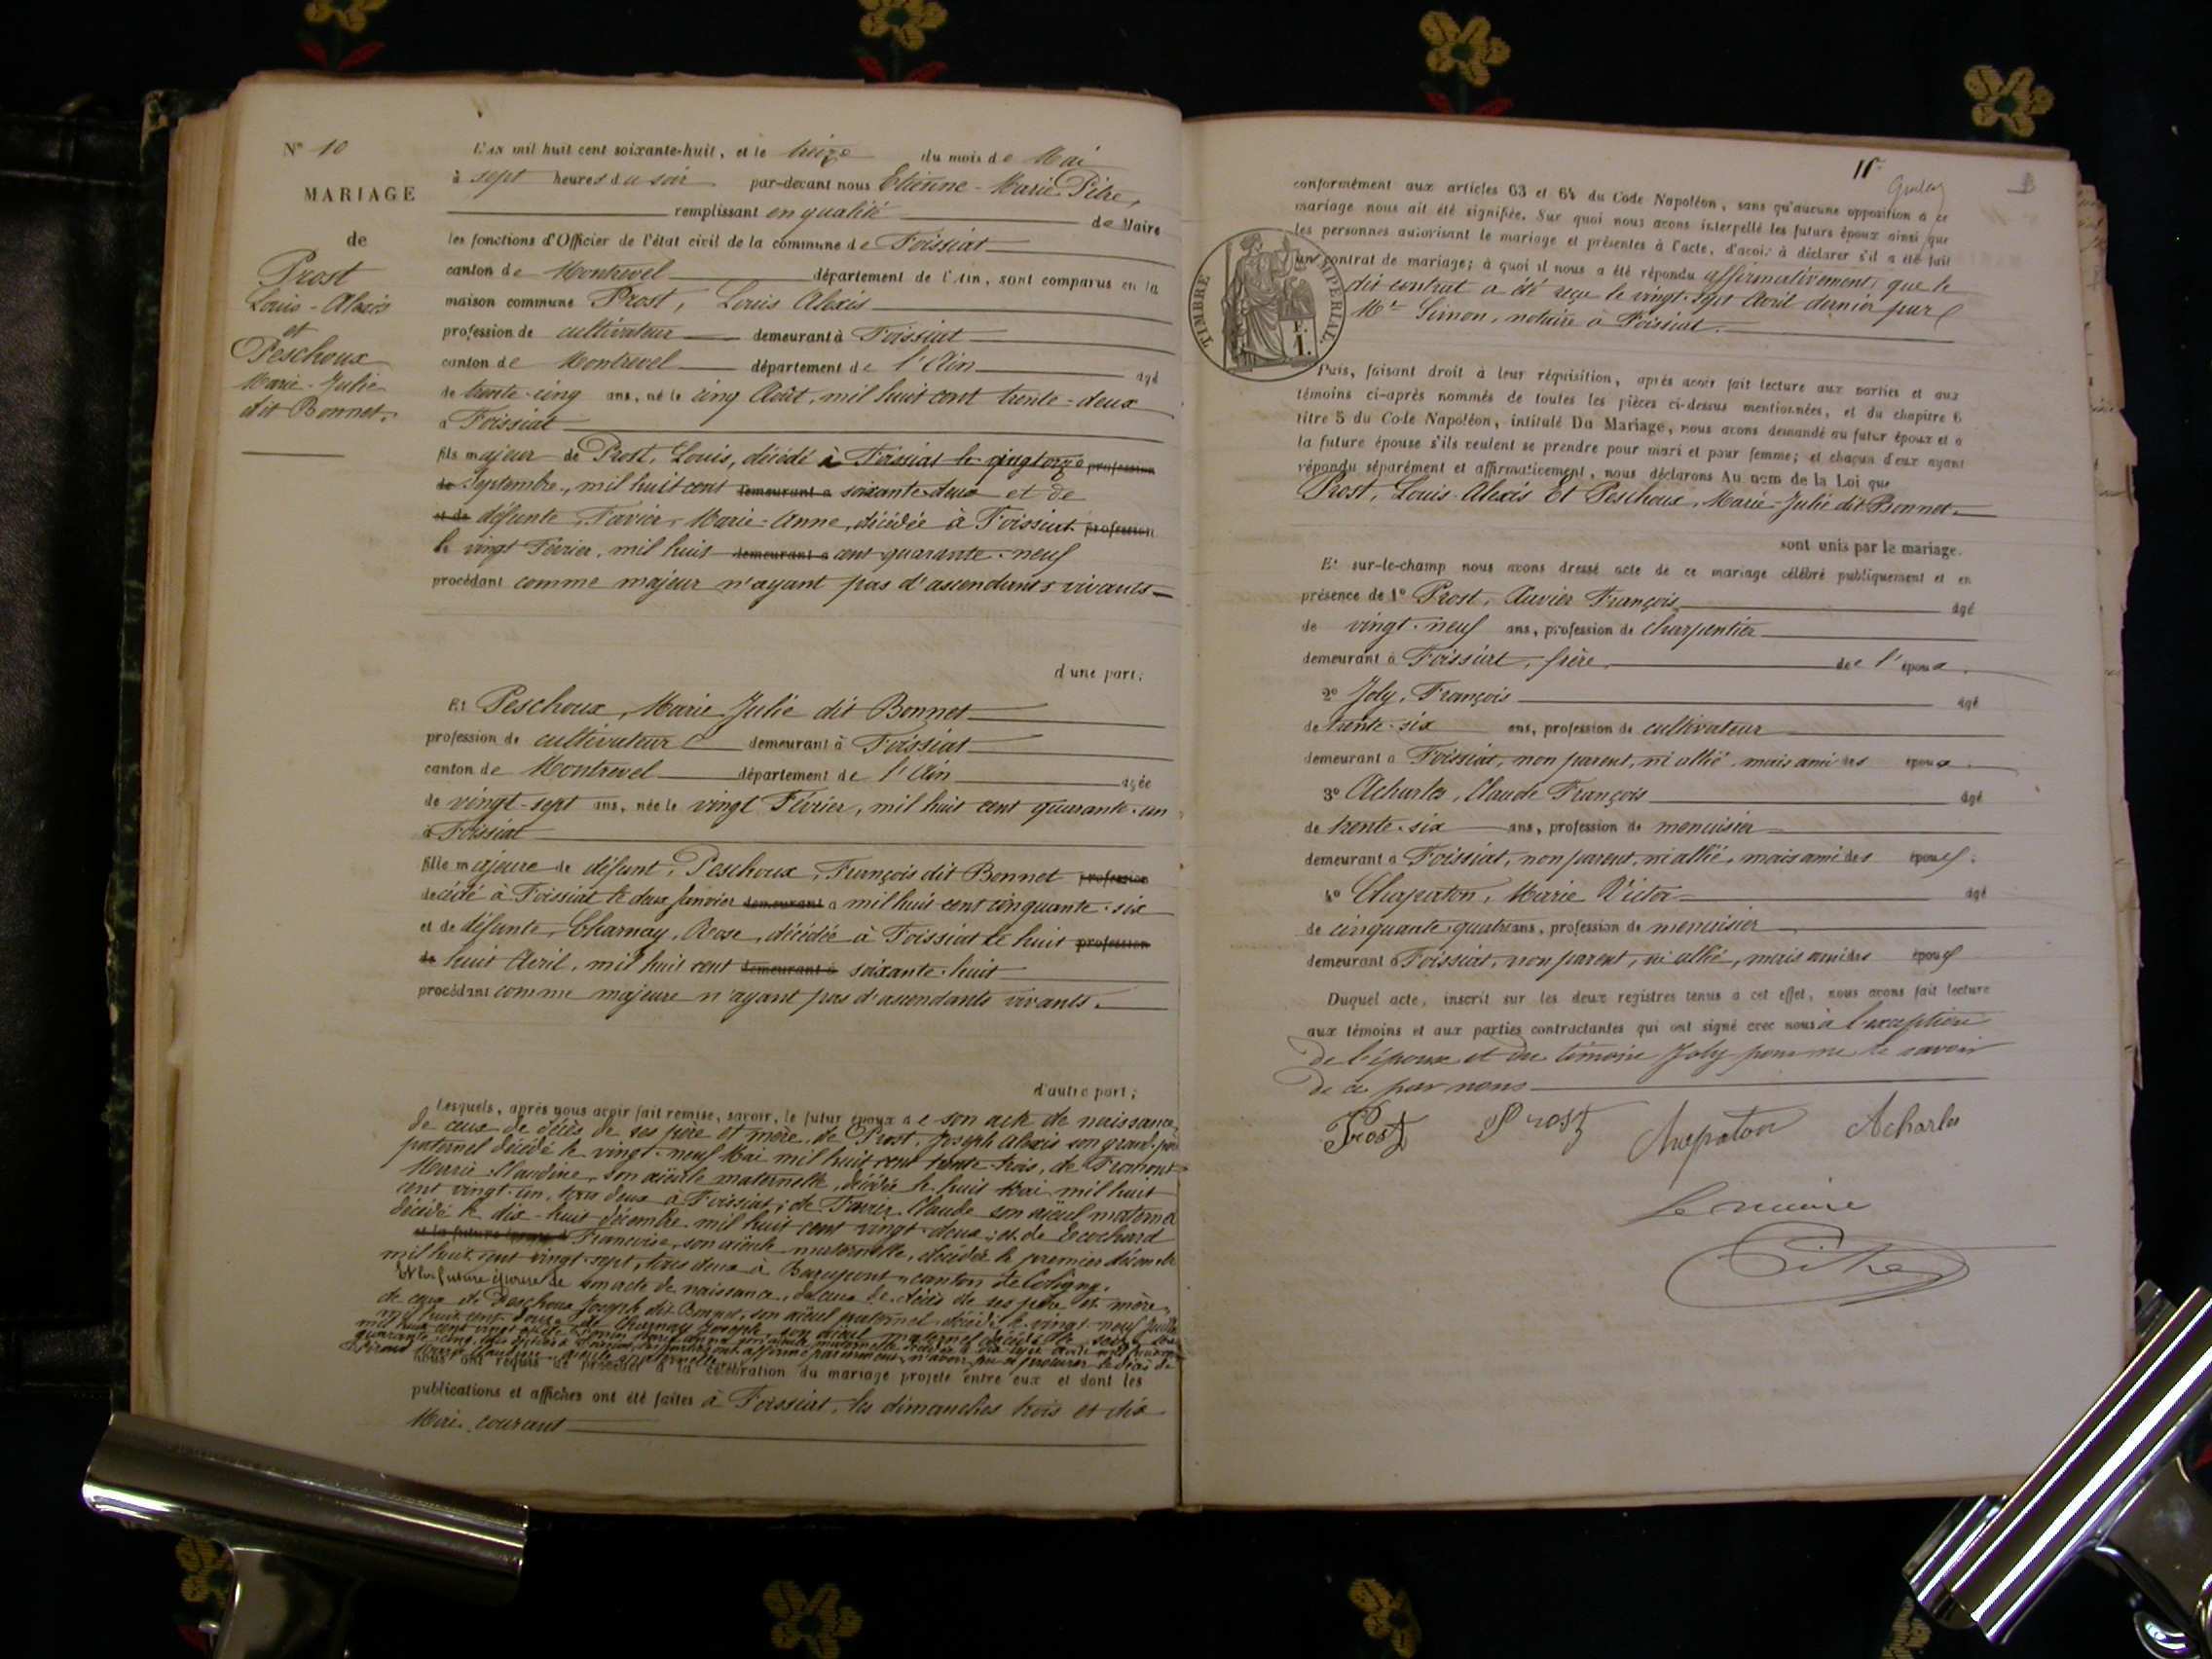 N° 10
MARIAGE
de
Prost
Louis-Alexis
et
Peschoux
Marie-Julie
dit Bonnet.
L'an mil huit cent soixante-huit, et le treize du mois de Mai
à sept heures du soir par-devant nous Etienne-Marie Pitre,
remplissant en qualité de Maire
les fonctions d'Officier de l'état civil de la commune de Foissiat
canton de Montrevel département de l'Ain, sont comparus en la
maison commune Prost, Louis Alexis
profession de cultivateur demeurant à Foissiat
canton de Montrevel département de l'Ain âgé
de trente-cinq ans, né le cinq Août, mil huit cent trente-deux
à Foissiat
fils majeur de Prost, Louis, décédé à Foissiat le vingt onze profession
de Septembre, mil huit cent demeurant à soixante deux et de
et de défunte Favier, Marie-Anne, décédée à Foissiat profession
le vingt Février, mil huit demeurant à cent quarante-neuf
procédant comme majeur n'ayant pas d'ascendants vivants
d'une part;
Et Peschoux, Marie Julie dit Bonnet
profession de cultivateur demeurant à Foissiat
canton de Montrevel département de l'Ain âgée
de vingt-sept ans, née le vingt Février, mil huit cent quarante-un
à Foissiat
fille majeure de défunt, Peschoux, François dit Bonnet profession
décédé à Foissiat le deux Janvier demeurant à mil huit cent cinquante-six
et de défunte, Charnay, Rose, décédée à Foissiat le huit profession
de huit Avril, mil huit cent demeurant à soixante-huit
procédant comme majeure n'ayant pas d'ascendants vivants.
d'autre part;
Lesquels, après nous avoir fait remise, savoir, le futur époux de son acte de naissance,
de ceux de décès de ses père et mère, de Prost, Joseph Alexis son grand-père
paternel décédé le vingt-neuf Mai mil huit cent trente-trois, de Fromont
Marie-Claudine, son aïeule maternelle, décédée le huit Mai mil huit
cent vingt-un, tous deux à Foissiat; de Favier Claude son aïeul maternel
décédé le dix-huit décembre mil huit cent vingt-deux; et de Ecochard
et la future épouse Francoise, son aïeule maternelle, décédée le premier décembre
mil huit cent vingt-sept, tous deux à canton de Coligny.
Et la future épouse de son acte de naissance, de ceux de décès de ses père et mère,
de ceux de Peschoux Joseph dit Bonnet, son aïeul paternel décédé le vingt-neuf Juillet
mil huit cent douze de Charnay Joseph, son aïeul maternel décédé le
nous ont requis de procéder à la célébration du mariage projeté entre eux et dont les
publications et affiches ont été faites à Foissiat, les dimanches trois et dix
Mai courant
conformément aux articles 63 et 64 du Code Napoléon, sans qu'aucune opposition à ce
mariage nous ait été signifiée. Sur quoi nous avons interpellé les futurs époux ainsi que
les personnes autorisant le mariage et présentes à l'acte, d'avoir à déclarer s'il a été fait
un contrat de mariage; à quoi il nous a été répondu affirmativement, que le
dit contrat a été reçu le vingt-sept Avril dernier par
Me Simon, notaire à Foissiat.
TIMBRE IMPÉRIAL
Puis, faisant droit à leur réquisition, après avoir fait lecture aux parties et aux
témoins ci-après nommés de toutes les pièces ci-dessus mentionnées, et du chapitre 6
titre 5 du Code Napoléon, intitulé Du Mariage, nous avons demandé au futur époux et à
la future épouse s'ils veulent se prendre pour mari et pour femme; et chacun d'eux ayant
répondu séparément et affirmativement, nous déclarons Au nom de la Loi que
Prost, Louis Alexis Et Peschoux, Marie-Julie dit Bonnet.
sont unis par le mariage.
Et sur-le-champ nous avons dressé acte de ce mariage célébré publiquement et en
présence de 1° Prost, Auvier François âgé
de vingt-neuf ans, profession de charpentier
demeurant à Foissiat, frère de l'époux.
2° Joly, François âgé
de trente-six ans, profession de cultivateur
demeurant à Foissiat, non parent, ni allié mais ami des époux.
3° Acharles, Claude François âgé
de trente-six ans, profession de menuisier
demeurant à Foissiat, non parent, ni allié, mais ami des époux.
4° Chapaton, Marie Victor âgé
de cinquante-quatre ans, profession de menuisier
demeurant à Foissiat, non parent, ni allié, mais ami des époux
Duquel acte, inscrit sur les deux registres tenus à cet effet, nous avons fait lecture
aux témoins et aux parties contractantes qui ont signé avec nous à l'exception
de l'épouse et du témoin Joly pour ne le savoir
de ce par nous
Prost Prost Chapaton Acharles
Le maire
Pitre